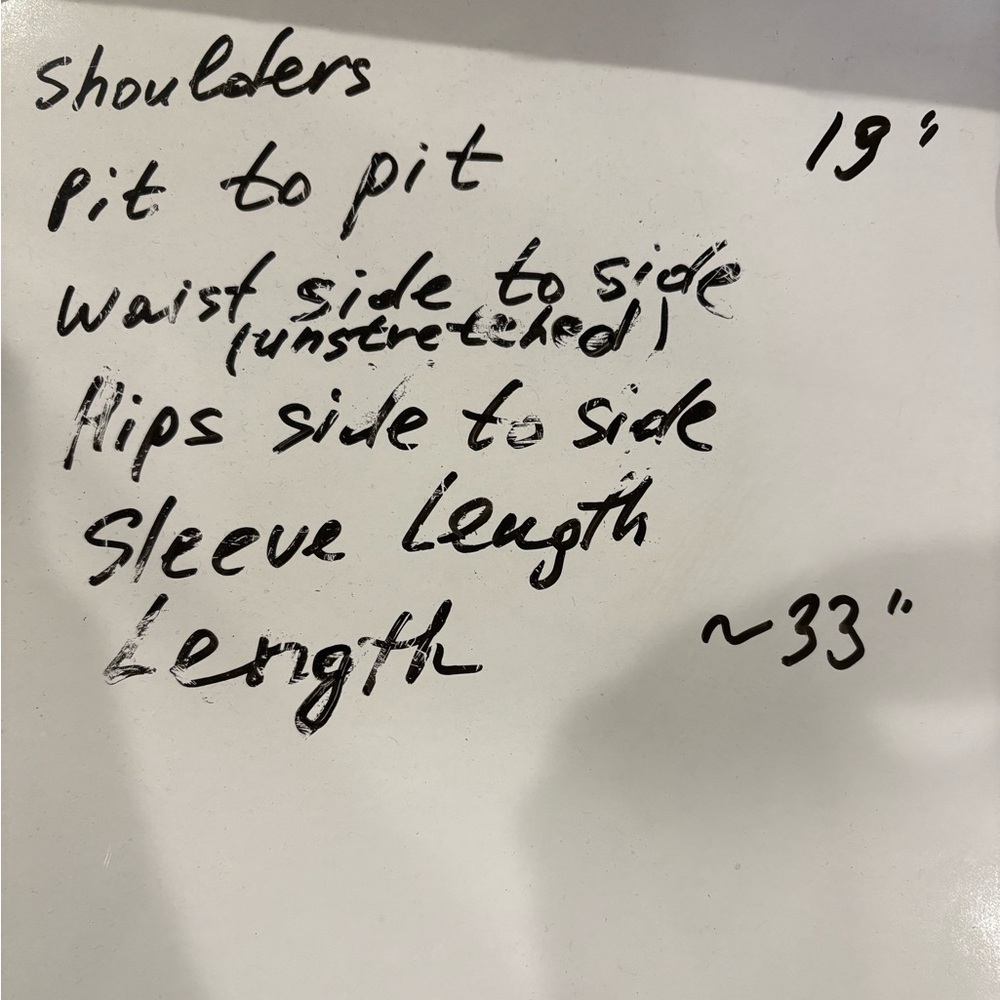 Shoulders
Pit to pit 19"
Waist side to side
(unstretched)
Hips side to side
Sleeve Length
Length ~33"